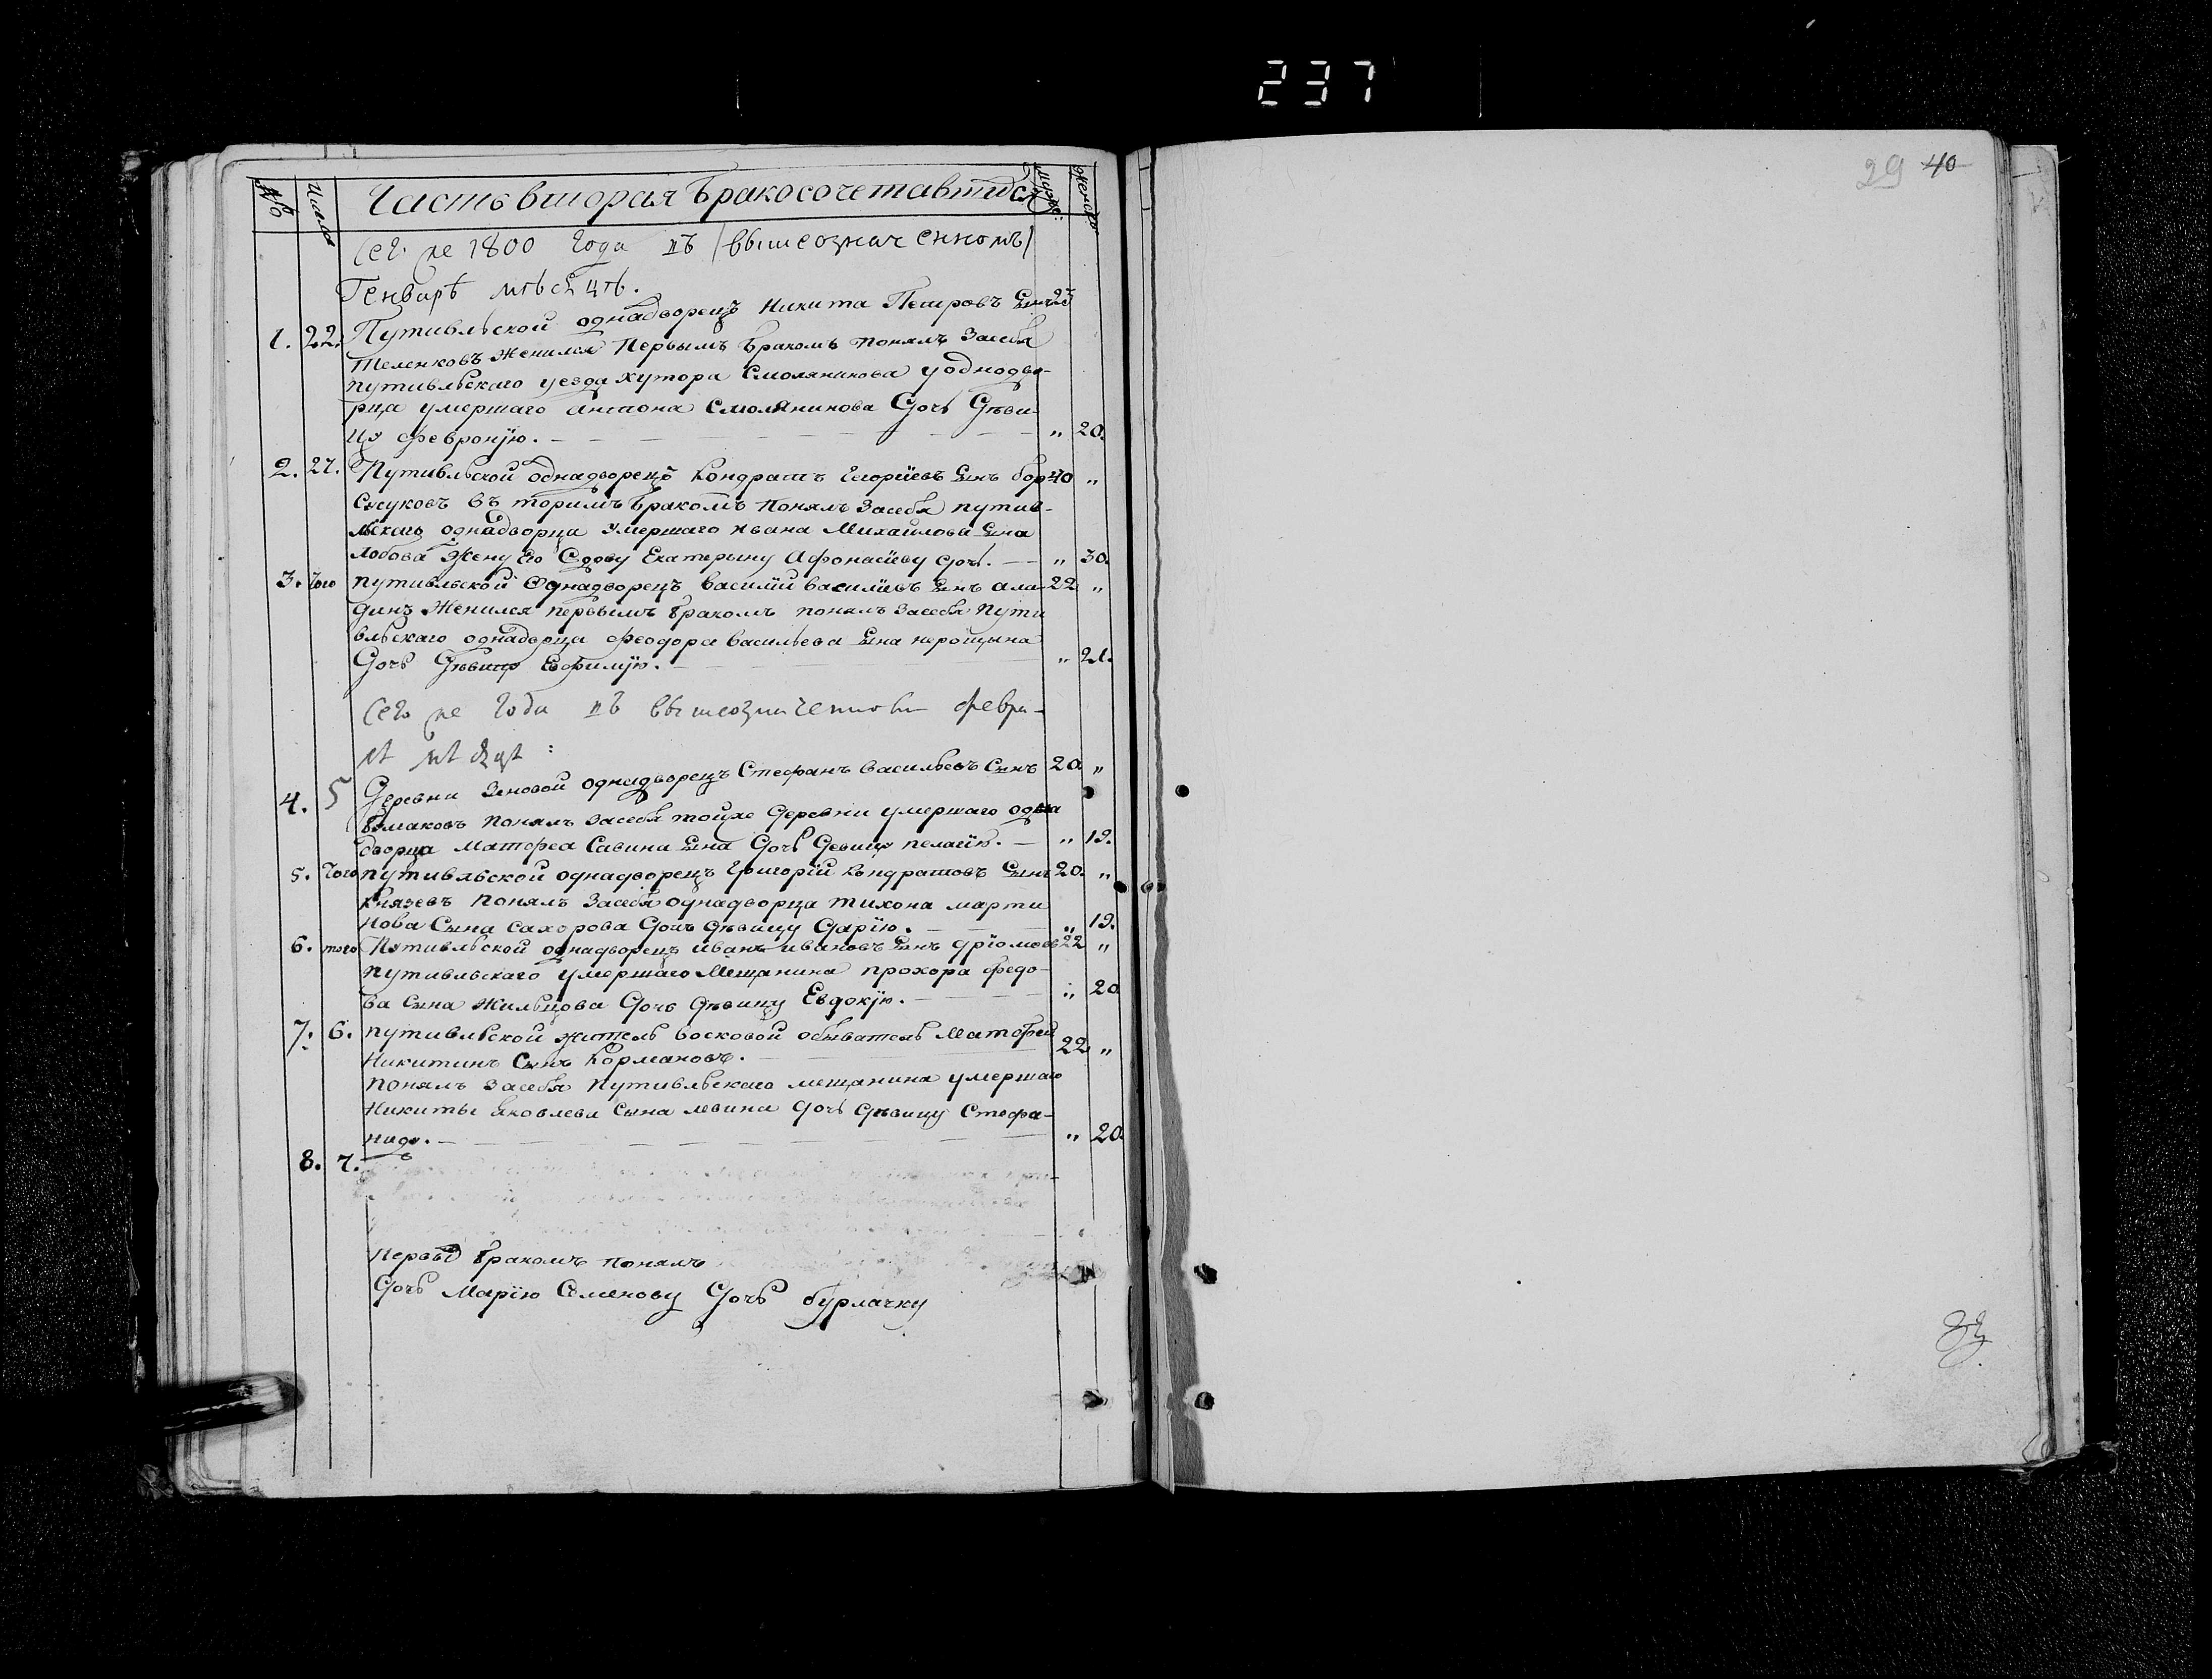 237
29 40
№ Число Часть вторая бракосочетавшихся мужс: женск:
Сего же 1800 года въ (вышеозначенномъ)
Генварѣ мѣсяцѣ.
1. 22. Путивльской однадворецъ Никита Петровъ Сынъ 23
Теленковъ женился первымъ бракомъ понялъ засебя
путивльскаго уезда хутора Смолянинова у однодво-
рца умершаго антона Смолянинова Дочь Дѣви-
цу февронїю. „ 20.
2. 27. Путивльской однадворецъ Кондратъ Георгїевъ Сынъ бор- 40 „
Сысуковъ въ торимъ бракомъ понялъ засебя путив-
льскаго однадворца умершаго Ивана Михаилова Сына
лобова жену Его Вдову Екатерину Афонасїеву дочь. „ 30.
3. того путивльской Однадворецъ василїй василїевъ Сынъ ала- 22 „
динъ женился первымъ бракомъ понялъ засебя Пути
вльскаго однадворца феодора васильева Сына
Дочь Дѣвицу Евфимїю. „ 21.
Сего же года въ вышеозначенномъ февра-
лѣ мѣсяцѣ :
4. 5 Деревни Зеновой однадворецъ Стефанъ васильевъ Сынъ 20 „
понялъ засебя тойже деревни умершаго одна
дворца матфеа Савина Сына Дочь Девицу пелагїю. „ 19.
5. того путивльской однадворецъ Григорїй Кондратовъ Сынъ 20. „
Князевъ понялъ засебя однадворца тихона марти
нова Сына сахорова Дочь дѣвицу Дарїю. „ 19.
6. того Путивльской однадворецъ иванъ ивановъ Сынъ 22 „
путивльскаго умершаго Мещанина прохора федо-
ва сына жильцова Дочь дѣвицу Евдокїю. „ 20
7. 6. путивльской житель восковой обыватель матфей
Никитинъ Сынъ Кормановъ. 22 „
понялъ засебя путивльскаго мещанина умершаго
Никиты яковлева сына левина дочь дѣвицу Стефа-
ниду. „ 20.
8. 7.
первы бракомъ понялъ
Дочь Марїю Семенову Дочь бурлачку